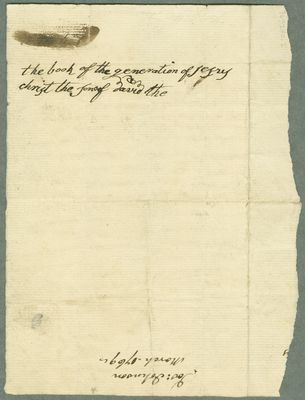 the book of the generation of Jesus
christ the son of david the
Johnson
March 1769